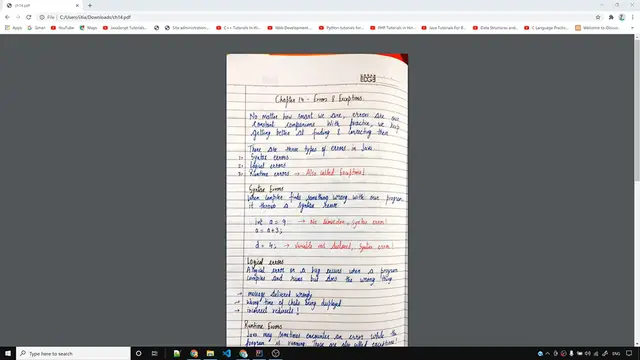 ch14.pdf
File | C:/Users/Lhia/Downloads/ch14.pdf
Apps
Gmail
YouTube
Maps
JavaScript Tutorials...
Site administration...
C++ Tutorials In Hi...
Web Development...
Python tutorials for...
PHP Tutorials in Hi...
Java Tutorials For B...
C Language Practic...
Welcome to Discus...
Chapter 14 - Errors & Exceptions
No matter how smart we are, errors are our
constant companions. With practice, we keep
getting better at finding & correcting them
There are three types of errors in Java
1) Syntax errors
2) Logical errors
3) Runtime errors → Also called Exceptions!
Syntax Errors
When compiler finds something wrong with our program
it throws a syntax error
int a = 9 → No semicolon, syntax error!
a = a+3;
d = 4; → Variable not declared, syntax error!
Logical errors
A logical error or a bug occurs when a program
compiles and runs but does the wrong thing
→ message delivered wrongly
→ wrong time of chats being displayed
→ incorrect redirects!
Runtime Errors
Java may sometimes encounter an error while the
program is running. These are also called exceptions!
Type here to search